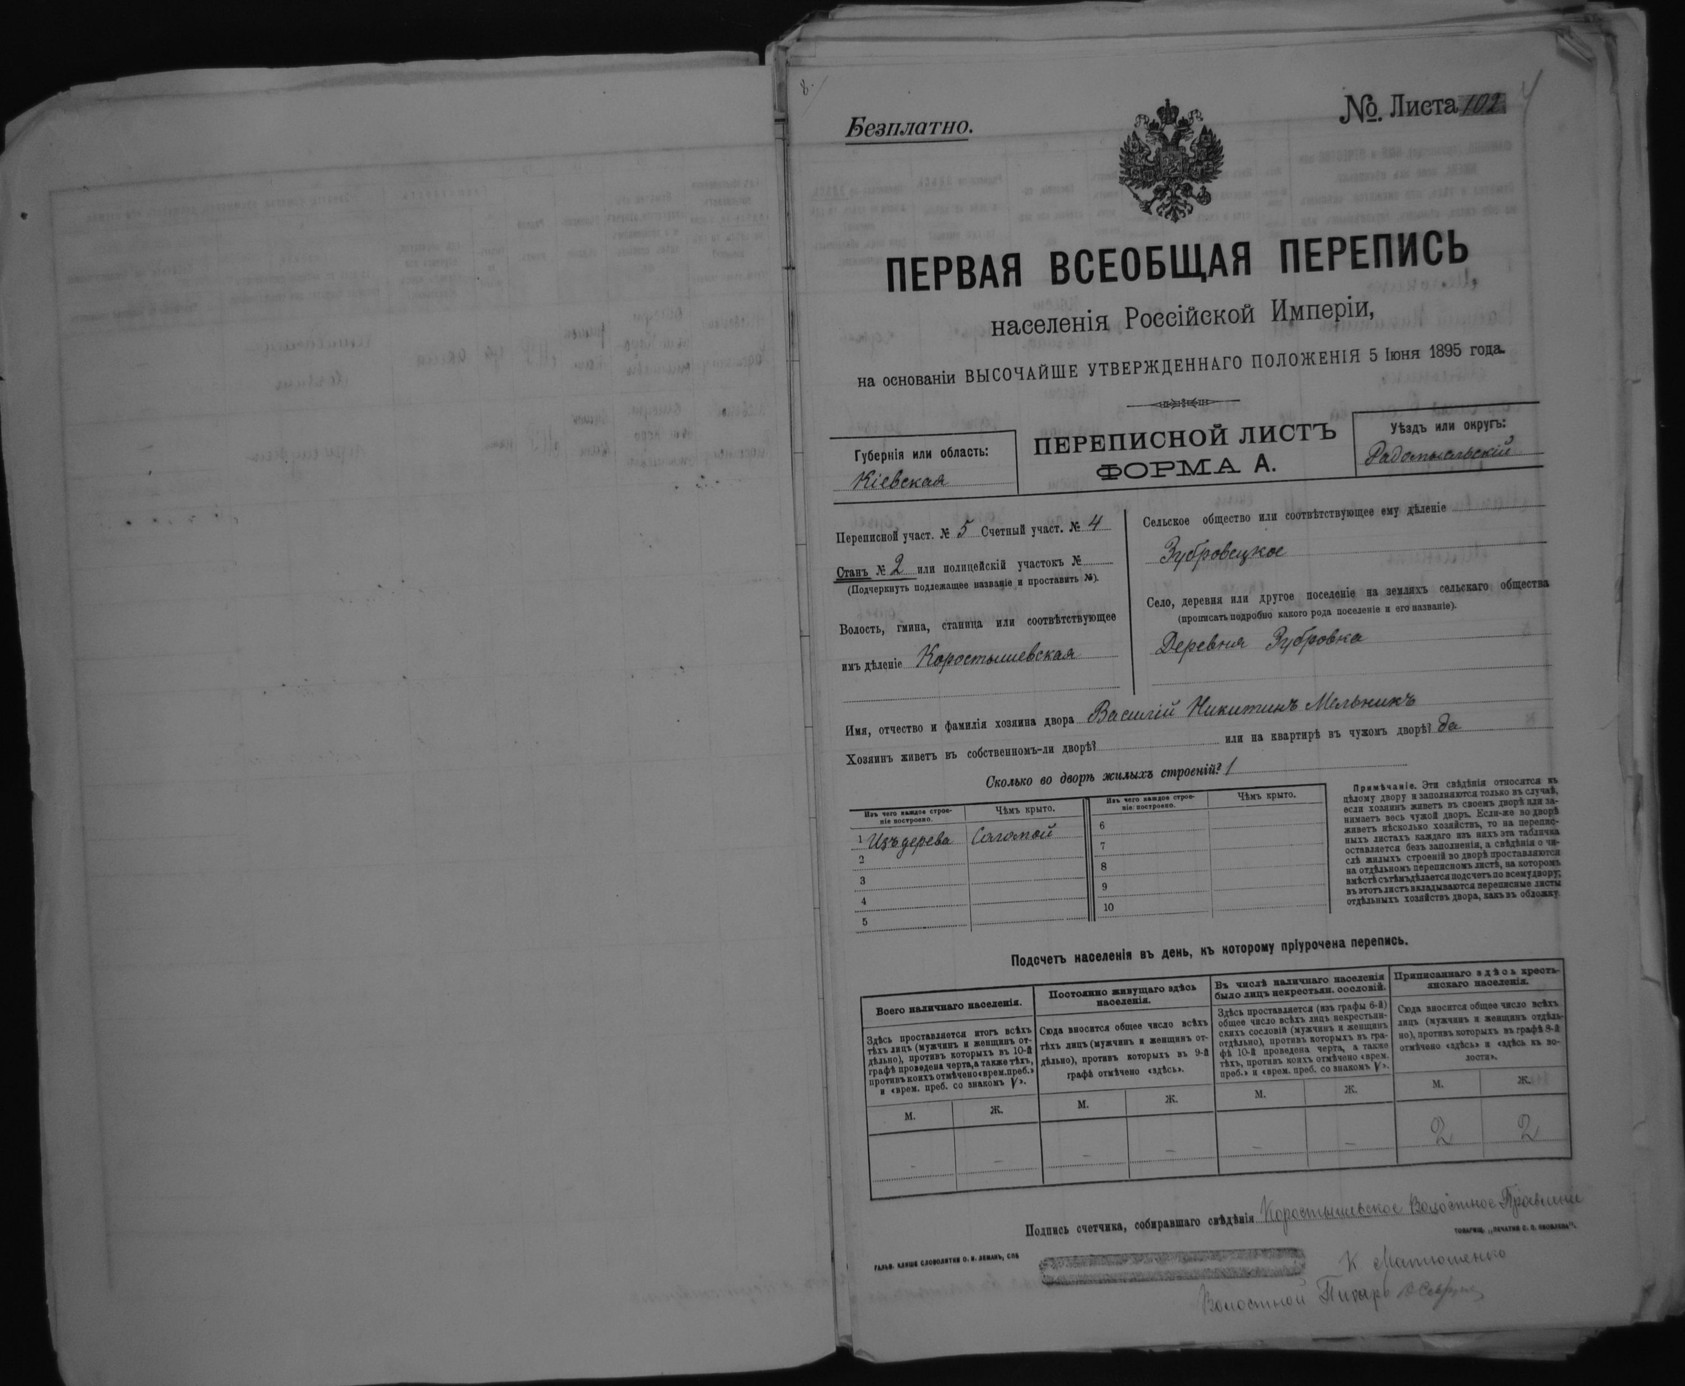 Безплатно.
№. Листа 102
ПЕРВАЯ ВСЕОБЩАЯ ПЕРЕПИСЬ
населенія Россійской Имперіи,
на основаніи ВЫСОЧАЙШЕ УТВЕРЖДЕННАГО ПОЛОЖЕНІЯ 5 Іюня 1895 года.
Губернія или область:
Кіевская
ПЕРЕПИСНОЙ ЛИСТЪ
ФОРМА А.
Уѣздъ или округъ:
Радомысльскій
Переписной участ. № 5 Счетный участ. № 4
Станъ № 2 или полицейскій участокъ №
(Подчеркнуть подлежащее названіе и проставить №).
Волость, гмина, станица или соотвѣтствующее
имъ дѣленіе Коростышевская
Сельское общество или соотвѣтствующее ему дѣленіе
Зубровецкое
Село, деревня или другое поселеніе на земляхъ сельскаго общества
(прописать подробно какого рода поселеніе и его названіе).
Деревня Зубровка
Имя, отчество и фамилія хозяина двора Василій Никитинъ Мельникъ
Хозяинъ живетъ въ собственномъ-ли дворѣ? или на квартирѣ въ чужомъ дворѣ? да
Сколько во дворѣ жилыхъ строеній? 1
Изъ чего каждое строе-
ніе построено.
Чѣмъ крыто.
1 Изъ дерева Соломой
2
3
4
5
Изъ чего каждое строе-
ніе построено.
Чѣмъ крыто.
6
7
8
9
10
Примѣчаніе. Эти свѣдѣнія относятся къ
цѣлому двору и заполняются только въ случаѣ,
если хозяинъ живетъ въ своемъ дворѣ или за-
нимаетъ весь чужой дворъ. Если-же во дворѣ
живетъ нѣсколько хозяйствъ, то на перепис-
ныхъ листахъ каждаго изъ нихъ эта табличка
оставляется безъ заполненія, а свѣдѣнія о чи-
слѣ жилыхъ строеній во дворѣ проставляются
на отдѣльномъ переписномъ листѣ, на которомъ
вмѣстѣ съ тѣмъ дѣлается подсчетъ по всему двору;
въ этотъ листъ вкладываются переписные листы
отдѣльныхъ хозяйствъ двора, какъ въ обложку.
Подсчетъ населенія въ день, къ которому пріурочена перепись.
Всего наличнаго населенія.
Здѣсь проставляется итогъ всѣхъ
тѣхъ лицъ (мужчинъ и женщинъ от-
дѣльно), противъ которыхъ въ 10-й
графѣ проведена черта, а также тѣхъ,
противъ коихъ отмѣчено «врем. преб.»
и «врем. преб. со знакомъ V».
М. Ж.
- -
Постоянно живущаго здѣсь
населенія.
Сюда вносится общее число всѣхъ
тѣхъ лицъ (мужчинъ и женщинъ от-
дѣльно), противъ которыхъ въ 9-й
графѣ отмѣчено «здѣсь».
М. Ж.
- -
Въ числѣ наличнаго населенія
было лицъ некрестьян. сословій.
Здѣсь проставляется (изъ графы 6-й)
общее число всѣхъ лицъ некрестьян-
скихъ сословій (мужчинъ и женщинъ
отдѣльно), противъ которыхъ въ гра-
фѣ 10-й проведена черта, а также
тѣхъ, противъ коихъ отмѣчено «врем.
преб.» и «врем. преб. со знакомъ V».
М. Ж.
- -
Приписаннаго здѣсь кресть-
янскаго населенія.
Сюда вносится общее число всѣхъ
лицъ (мужчинъ и женщинъ отдѣль-
но), противъ которыхъ въ графѣ 8-й
отмѣчено «здѣсь» и «здѣсь въ во-
лости».
М. Ж.
2 2
Подпись счетчика, собиравшаго свѣдѣнія Коростышевское Волостное Правленіе
ГАЛЬВ. КЛИШЕ СЛОВОЛИТНИ О. И. ЛЕМАНЪ, СПБ
ТОВАРИЩ. „ПЕЧАТНЯ С. П. ЯКОВЛЕВА“.
К Матюшенко
Волостной Писарь